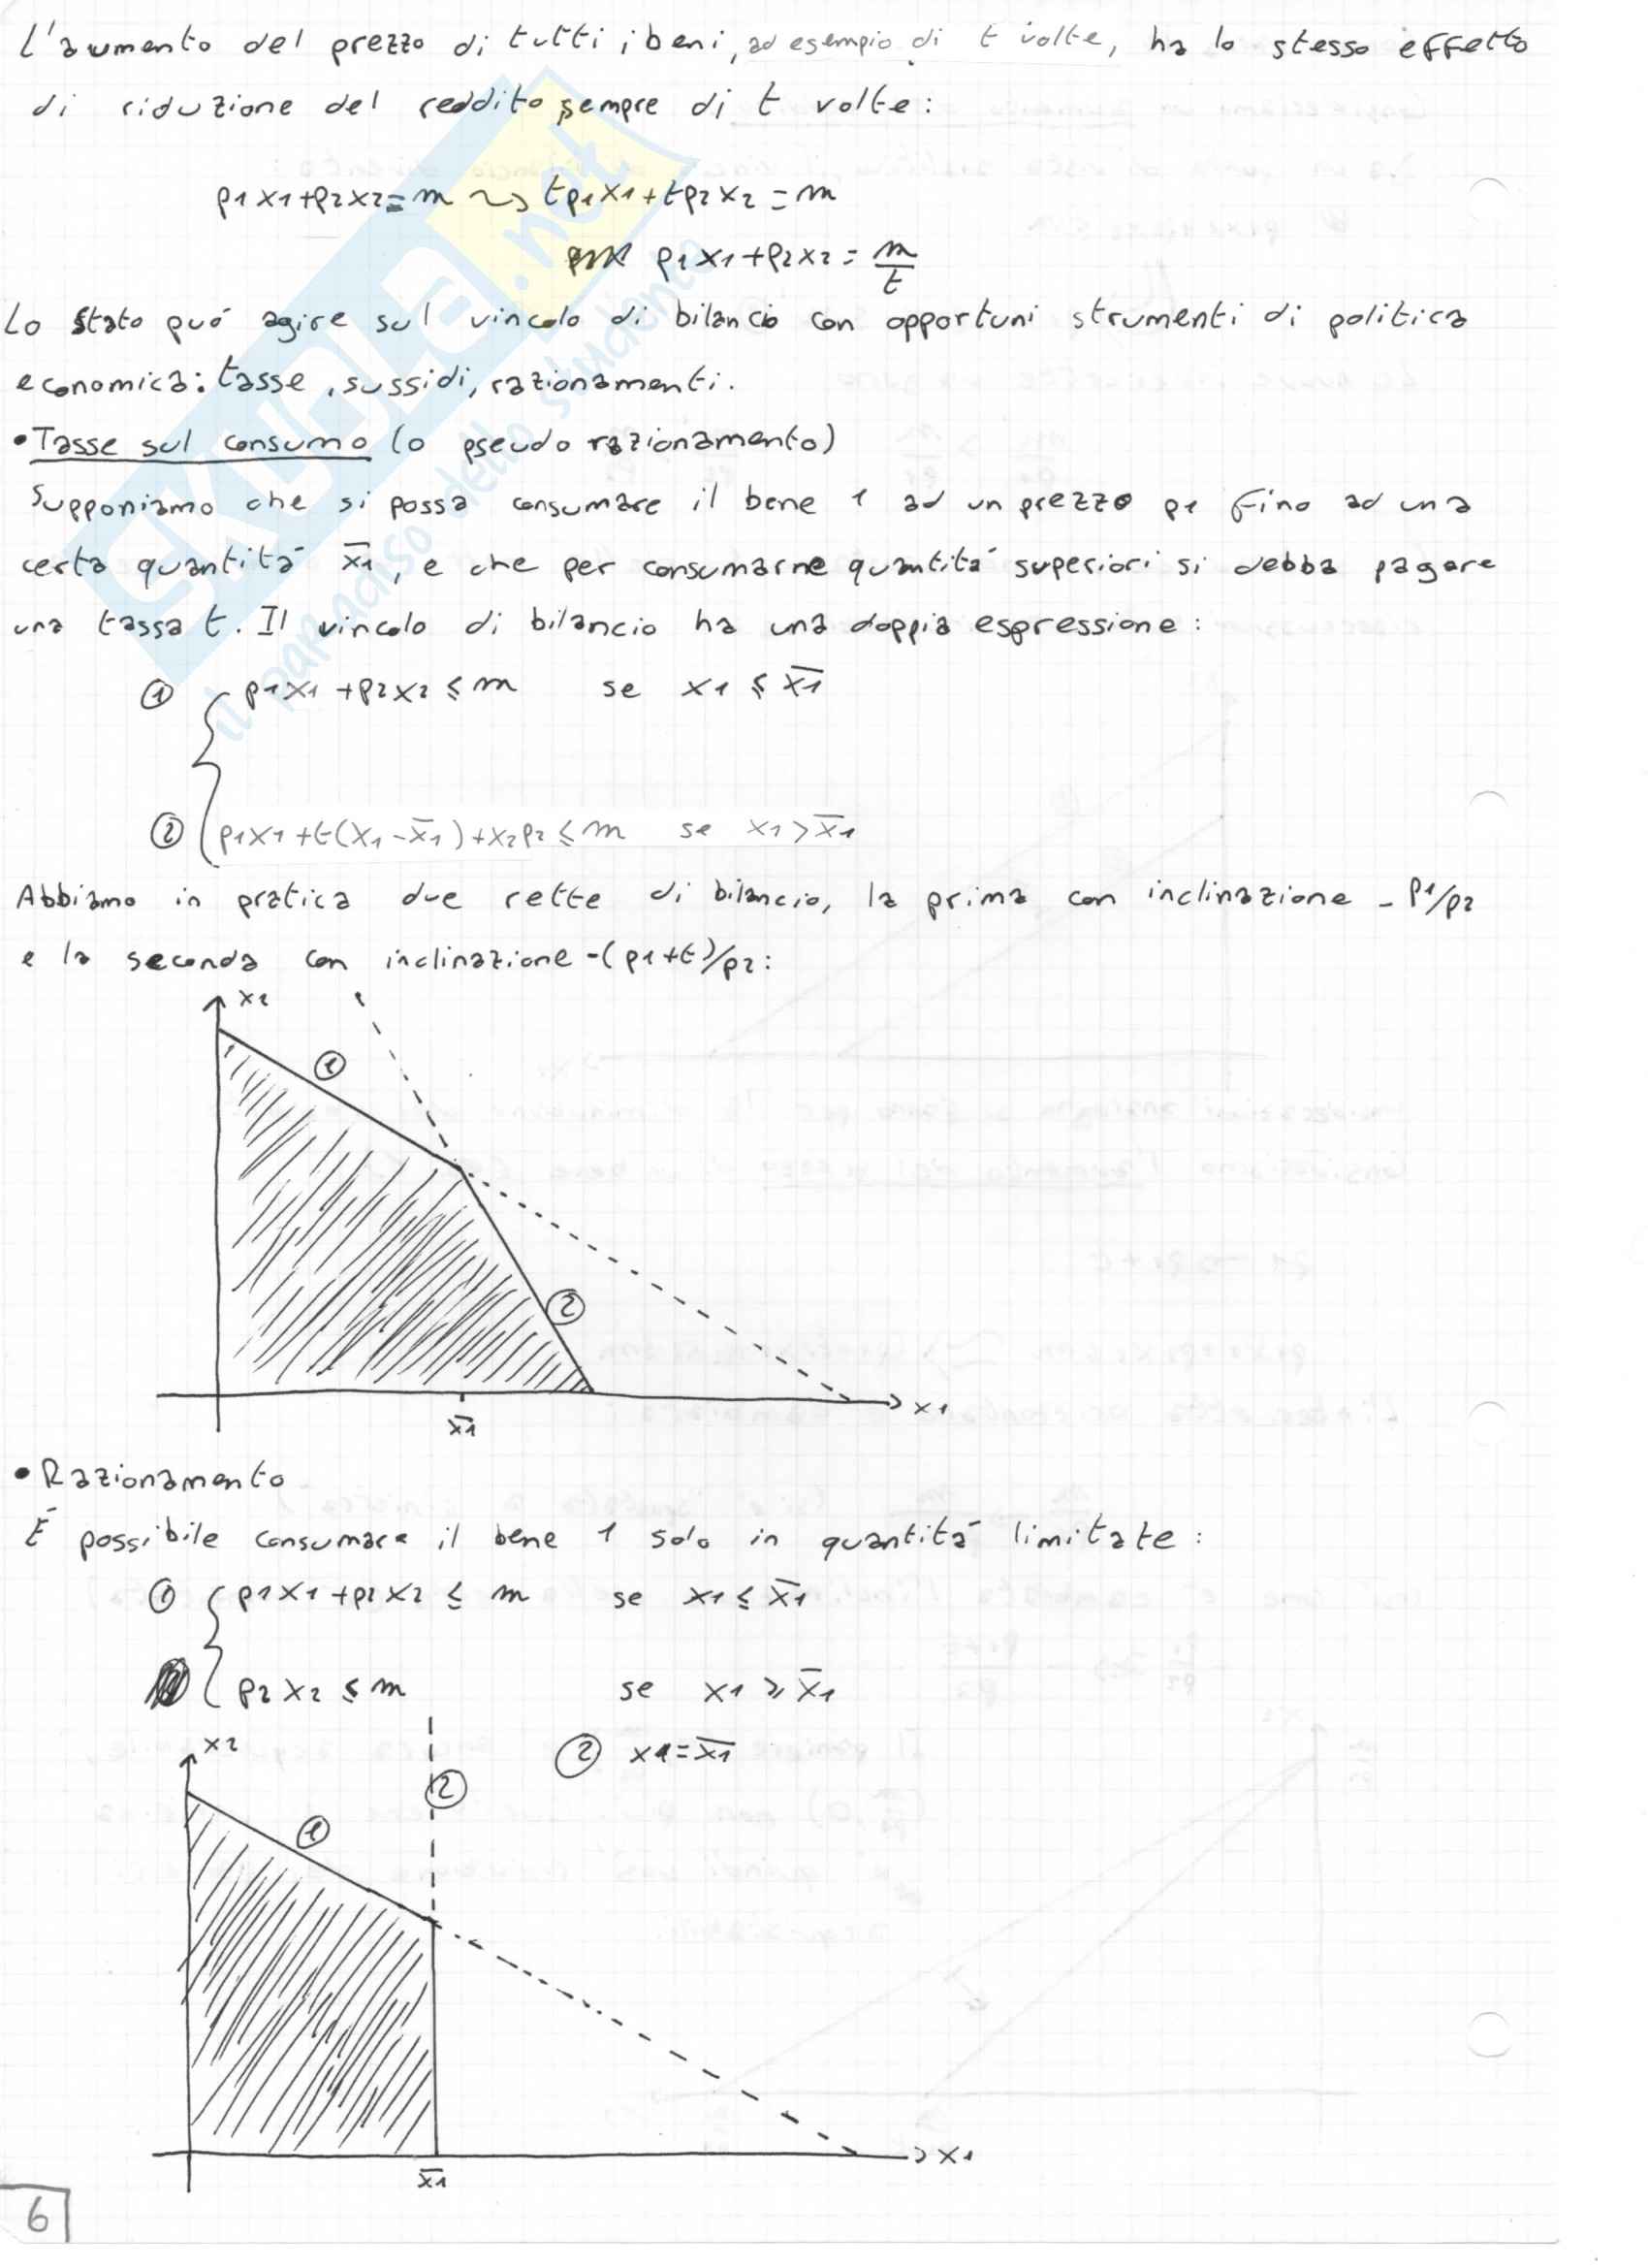 L'aumento del prezzo di tutti i beni, ad esempio di t volte, ha lo stesso effetto
di riduzione del reddito sempre di t volte:
p1x1+p2x2=m ⤳ tp1x1+tp2x2=m
p1x1+p2x2=m/t
Lo stato può agire sul vincolo di bilancio con opportuni strumenti di politica
economica: tasse, sussidi, razionamenti.
•Tasse sul consumo (o pseudo razionamento)
Supponiamo che si possa consumare il bene 1 ad un prezzo p1 fino ad una
certa quantità x̄1, e che per consumarne quantità superiori si debba pagare
una tassa t. Il vincolo di bilancio ha una doppia espressione:
① p1x1+p2x2≤m se x1≤x̄1
② p1x1+t(x1-x̄1)+x2p2≤m se x1>x̄1
Abbiamo in pratica due rette di bilancio, la prima con inclinazione -p1/p2
e la seconda con inclinazione -(p1+t)/p2:
x2
①
②
x1
x̄1
•Razionamento
È possibile consumare il bene 1 solo in quantità limitate:
① p1x1+p2x2≤m se x1≤x̄1
p2x2≤m se x1≥x̄1
② x1=x̄1
x2
②
①
x1
x̄1
6
SKUOLA.net
il paradiso dello studente